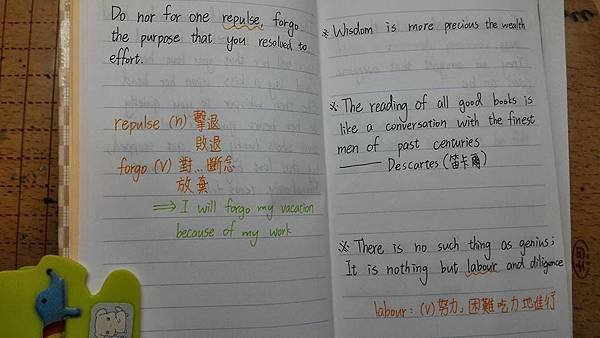 Do nor for one repulse, forgo
the purpose that you resolved to
effort.
repulse (n) 擊退
敗退
forgo (v) 對...斷念
放棄
⇒ I will forgo my vacation
because of my work
※ Wisdom is more precious the wealth
※ The reading of all good books is
like a conversation with the finest
men of past centuries
—— Descartes (笛卡爾)
※ There is no such thing as genius;
It is nothing but labour and diligence
labour: (v) 努力, 困難吃力地進行